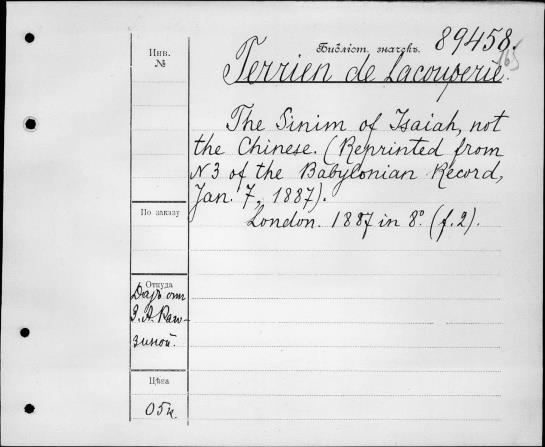 Инв.
№
Библіот. значекъ. 89458.
Terrien de Lacouperie.
The Sinim of Isaiah, not
the Chinese. (Reprinted from
N3 of the Babylonian Record,
Jan. 7, 1887).
London. 1887 in 8º. (f. 2).
По заказу
Откуда
Даръ отъ
зиной.
Цѣна
05к.